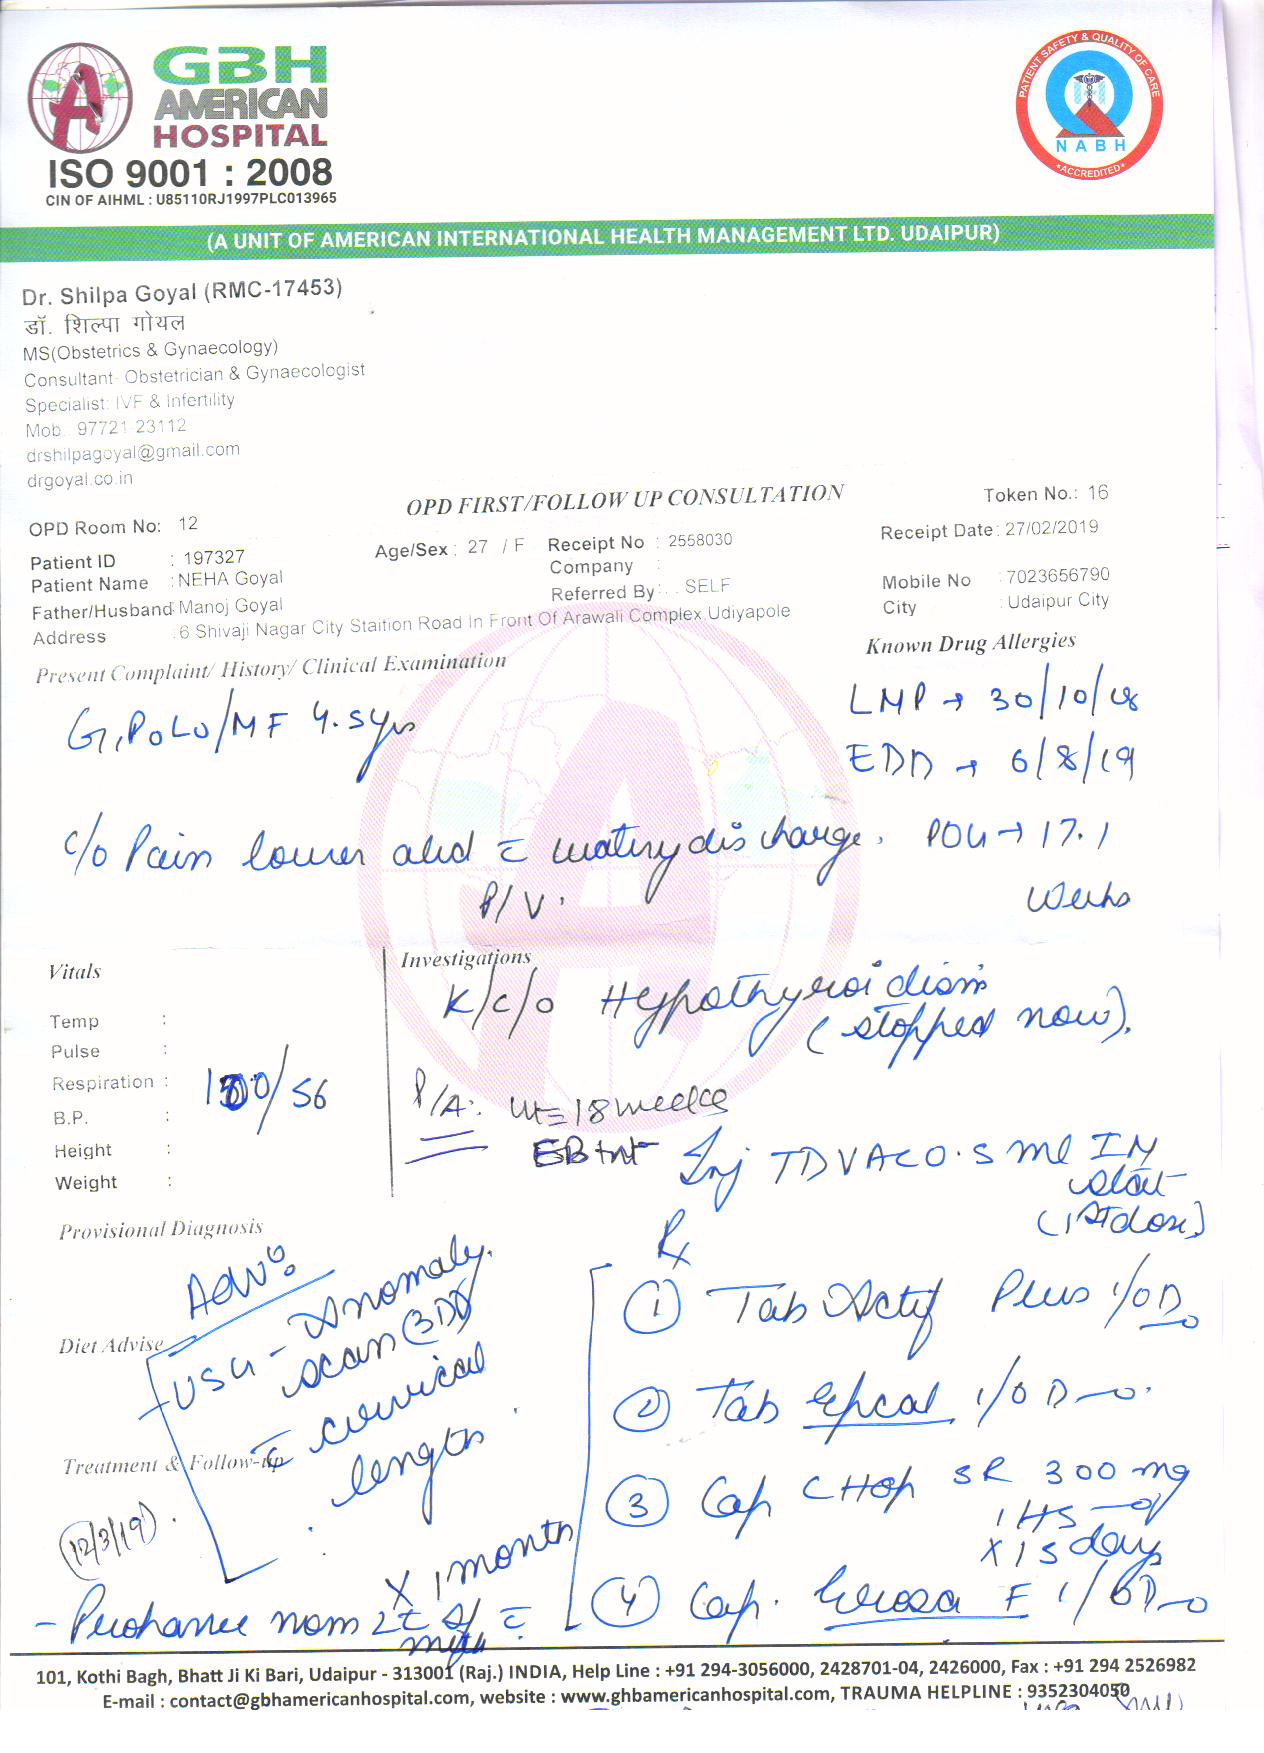 GBH
AMERICAN
HOSPITAL
ISO 9001 : 2008
CIN OF AIHML : U85110RJ1997PLC013965
PATIENT SAFETY & QUALITY OF CARE
NABH
ACCREDITED
(A UNIT OF AMERICAN INTERNATIONAL HEALTH MANAGEMENT LTD. UDAIPUR)
Dr. Shilpa Goyal (RMC-17453)
डॉ. शिल्पा गोयल
MS(Obstetrics & Gynaecology)
Consultant- Obstetrician & Gynaecologist
Specialist: IVF & Infertility
Mob.. 97721 23112
drshilpagoyal@gmail.com
drgoyal.co.in
OPD FIRST/FOLLOW UP CONSULTATION
Token No.: 16
OPD Room No: 12
Receipt Date: 27/02/2019
Patient ID : 197327
Age/Sex : 27 / F
Receipt No : 2558030
Patient Name : NEHA Goyal
Company :
Mobile No : 7023656790
Father/Husband: Manoj Goyal
Referred By: . . SELF
City : Udaipur City
Address : 6 Shivaji Nagar City Staition Road In Front Of Arawali Complex,Udiyapole
Known Drug Allergies
Present Complaint/ History/ Clinical Examination
LMP → 30/10/18
G1P0L0/MF 4.5yrs
EDD → 6/8/19
c/o Pain lower abd c watery discharge.
P/V.
POG → 17.1
weeks
Vitals
Investigations
K/c/o Hypothyroidism
(stopped now).
Temp :
Pulse :
Respiration :
B.P. :
/56
Height :
Weight :
P/A: ut = 18 weeks
Inj TDVAC 0.5 ml IM
stat
(1st dose)
Provisional Diagnosis
Adv:
USG - Anomaly
scan (3D)
c cervical
length
Diet Advise
Treatment & Follow-up
(12/3/19).
Rx
1 Tab Actif Plus 1/OD
2 Tab 1/OD
3 Cap CHOP SR 300 mg
1 HS
x 15 days
4 Cap. F 1/OD
x 1 month
101, Kothi Bagh, Bhatt Ji Ki Bari, Udaipur - 313001 (Raj.) INDIA, Help Line : +91 294-3056000, 2428701-04, 2426000, Fax : +91 294 2526982
E-mail : contact@gbhamericanhospital.com, website : www.ghbamericanhospital.com, TRAUMA HELPLINE : 9352304050